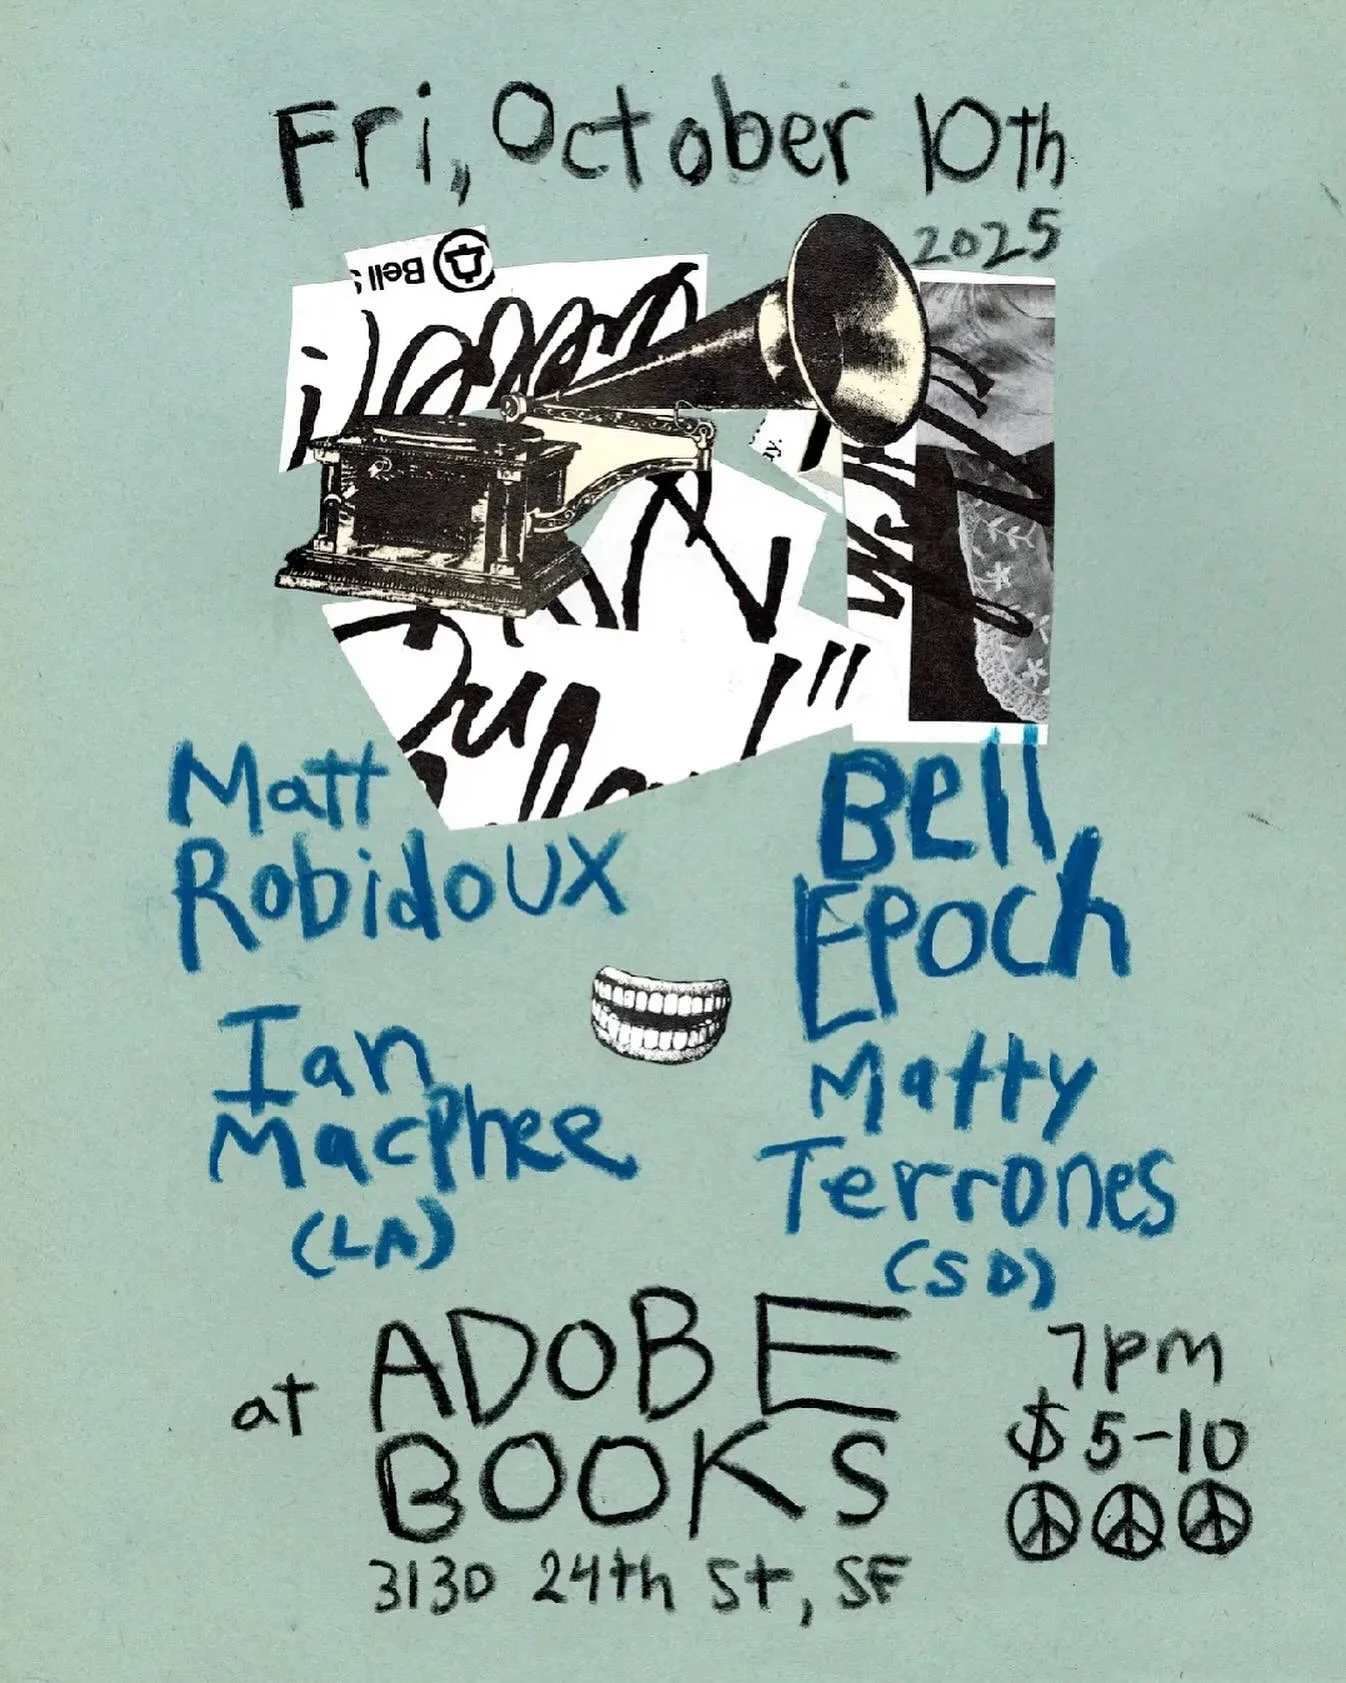 Fri, October 10th
2025
Bell
ay.
Matt
Robidoux
Bell
Epoch
Ian
Macphee
(LA)
Matty
Terrones
(SD)
at ADOBE
BOOKS
3130 24th St, SF
7pm
$5-10